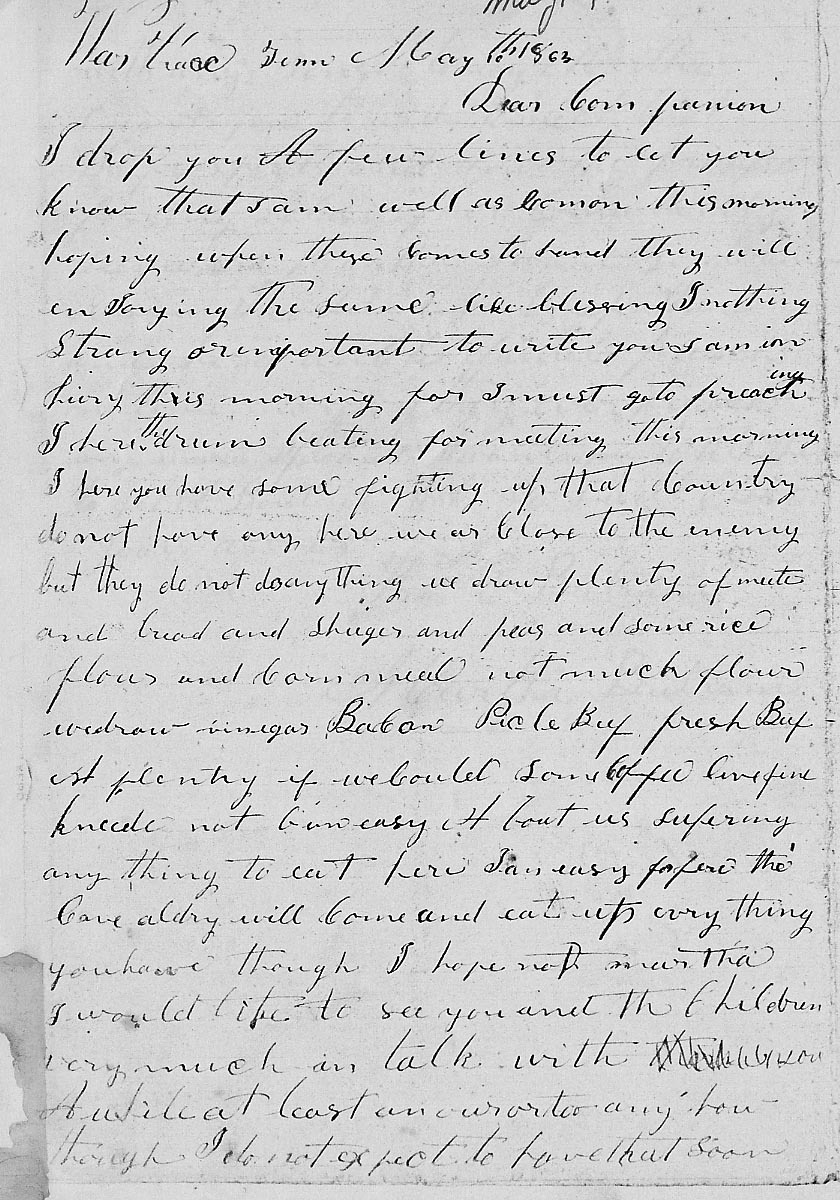 War trace Tenn May 10th 1863
Dear Com panion
I drop you A few lines to let you
know that I am well as Comon this morning
hoping when these Comes to hand they will
en Joying the same like blessing I nothing
Strang or important to write you I am in
hury this morning for I must go to preach ing
I here the drum beating for meeting this morning
I here you have some fighting up that Country
do not have any here we ar Close to the enemy
but they do not do anything we draw plenty of meete
and bread and Shuger and peas and some rice
flour and Corn meal not much flour
we draw vinegar Bacon Picle Buf fresh Buf
plentry if we Could Some Coffee live fine
kneede not b un easy A bout us sufering
any thing to eat here I an easy fofere the
Cave aldry will Come and eat up evry thing
you have though I hope not martha
I would like to see you and th Children
very much an talk with you
A while at least an our or too any how
though I do not expect to have that soon